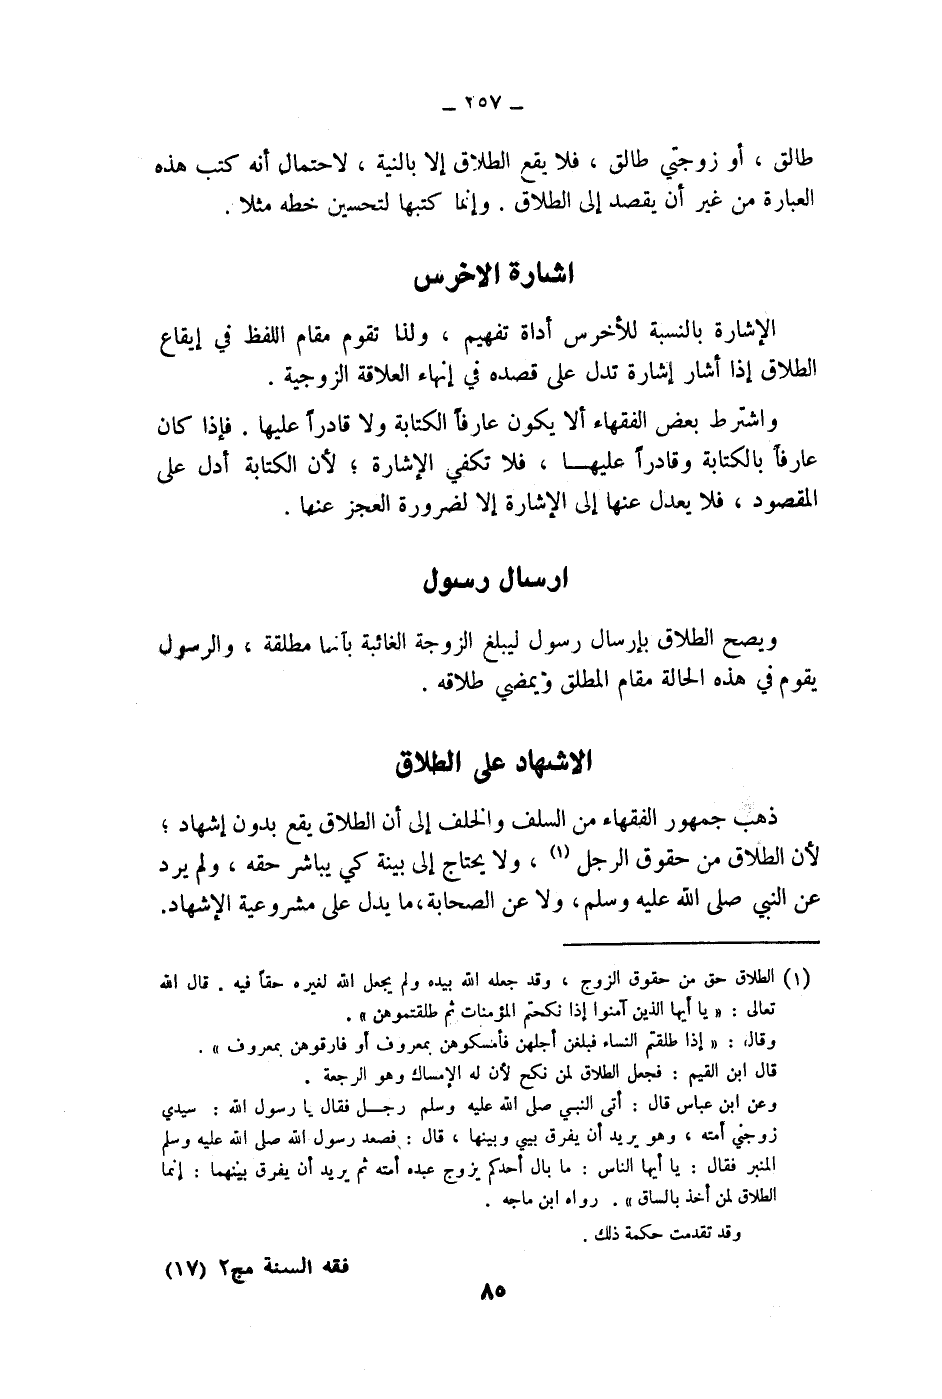 ـ ٢٥٧ ـ
طالق ، أو زوجتي طالق ، فلا يقع الطلاق إلا بالنية ، لاحتمال أنه كتب هذه
العبارة من غير أن يقصد إلى الطلاق . وإنما كتبها لتحسين خطه مثلا .
اشارة الاخرس
الإشارة بالنسبة للأخرس أداة تفهيم ، ولذا تقوم مقام اللفظ في إيقاع
الطلاق إذا أشار إشارة تدل على قصده في إنهاء العلاقة الزوجية .
واشترط بعض الفقهاء ألا يكون عارفاً الكتابة ولا قادراً عليها . فإذا كان
عارفاً بالكتابة وقادراً عليهـــا ، فلا تكفي الإشارة ؛ لأن الكتابة أدل على
المقصود ، فلا يعدل عنها إلى الإشارة إلا لضرورة العجز عنها .
ارسال رسول
ويصح الطلاق بإرسال رسول ليبلغ الزوجة الغائبة بأنها مطلقة ، والرسول
يقوم في هذه الحالة مقام المطلق ويمضي طلاقه .
الاشهاد على الطلاق
ذهب جمهور الفقهاء من السلف والخلف إلى أن الطلاق يقع بدون إشهاد ؛
لأن الطلاق من حقوق الرجل (١) ، ولا يحتاج إلى بينة كي يباشر حقه ، ولم يرد
عن النبي صلى الله عليه وسلم ، ولا عن الصحابة ، ما يدل على مشروعية الإشهاد.
(١) الطلاق حق من حقوق الزوج ، وقد جعله الله بيده ولم يجعل الله لغيره حقاً فيه . قال الله
تعالى : « يا أيها الذين آمنوا إذا نكحتم المؤمنات ثم طلقتموهن » .
وقال : « إذا طلقتم النساء فبلغن أجلهن فأمسكوهن بمعروف أو فارقوهن بمعروف » .
قال ابن القيم : فجعل الطلاق لمن نكح لأن له الإمساك وهو الرجعة .
وعن ابن عباس قال : أتى النبي صلى الله عليه وسلم رجـــل فقال يا رسول الله : سيدي
زوجني أمته ، وهو يريد أن يفرق بيني وبينها ، قال : فصعد رسول الله صلى الله عليه وسلم
المنبر فقال : يا أيها الناس : ما بال أحدكم يزوج عبده أمته ثم يريد أن يفرق بينهما : إنما
الطلاق لمن أخذ بالساق » . رواه ابن ماجه .
وقد تقدمت حكمة ذلك .
فقه السنة مج٢ (١٧)
٨٥